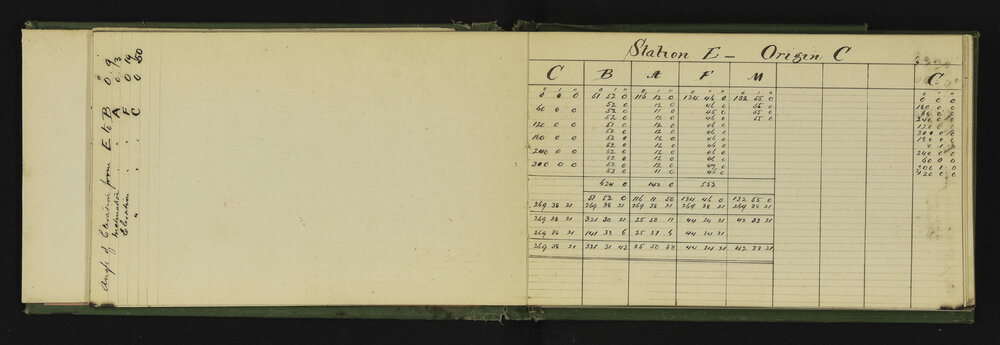 Angle of Elevation from E to B 0° 9'
" A 0 93
Elevation " F 0 19
" " C 0 50
Station E — Origin C
C B A F M C
° ' " ° ' " ° ' " ° ' " ° ' " ° ' "
0 0 0 51 52 0 116 12 0 134 46 0 132 55 0 0 0 0
52 0 12 0 46 0 180 0 0
60 0 0 52 0 11 0 45 0 55 0
52 0 12 0 46 0 55 0 240 0 0
120 0 0 51 0 12 0 46 0 120 0 0
52 0 12 0 46 0 300 0 0
180 0 0 52 0 12 0 46 0 180 0 0
52 0 12 0 46 0
240 0 0 52 0 12 0 46 0 240 0 0
52 0 12 0 46 0 60 0 0
300 0 0 52 0 12 0 300 1 0
53 0 11 0 46 0 120 0 0
624 0 142 0 552
51 52 0 116 11 50 134 46 0 132 55 0
269 38 21 269 38 21 269 38 21 269 38 21 269 38 21
269 38 21 321 30 21 25 50 11 44 24 21 42 33 21
269 38 21 141 32 6 25 51 6 44 24 21
269 38 21 321 31 43 25 50 39 44 24 21 42 33 21